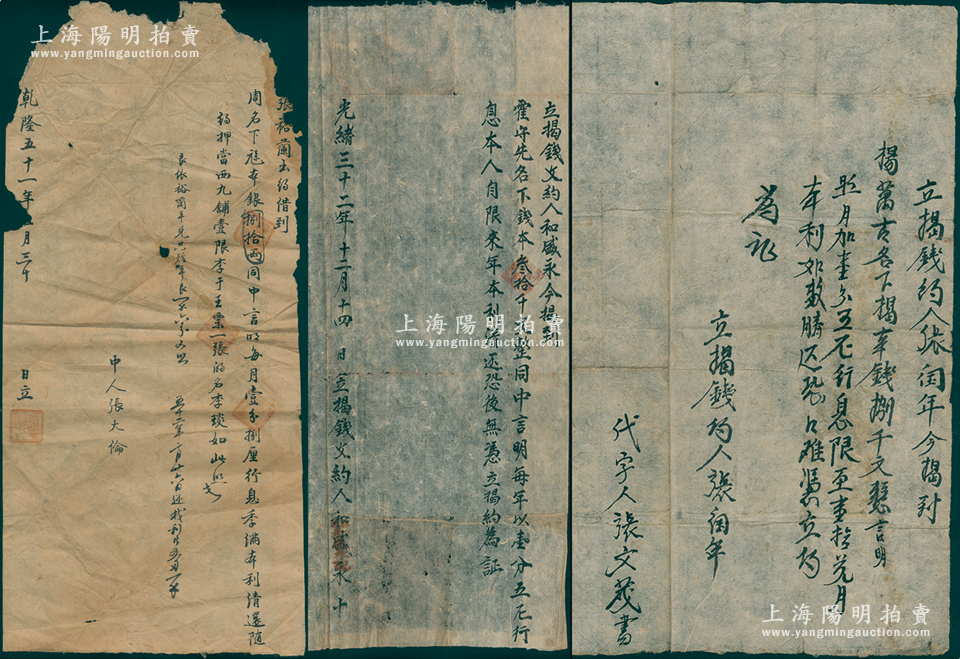 上海陽明拍賣
www.yangmingauction.com
張裕蘭出約借到
周名下足本銀捌拾兩同中言明每月壹分捌厘行息季滿本利清還隨
約押當西九舖壹限李于王票一張的名李琰如此照
中人張大倫
乾隆五十一年 月三十
日立
上海陽明拍賣
www.yangmingauction.com
立揭錢文約人和盛永今揭到
霍守先名下錢本叁拾千 同中言明每年以壹分五厘行
息本人自限來年本利 還恐後無憑立揭約為証
光緒三十二年十二月十四 日立揭錢文約人和盛永十
立揭錢約人張潤年今揭到
楊萬吉名下揭本錢捌千文整言明
照月加壹分五厘行息限至壹拾 月
本利如數 還恐口難憑立約
為証
立揭錢約人張潤年
代字人張文茂書
上海陽明拍賣
www.yangmingauction.com
上海陽明拍賣
www.yangmingauction.com